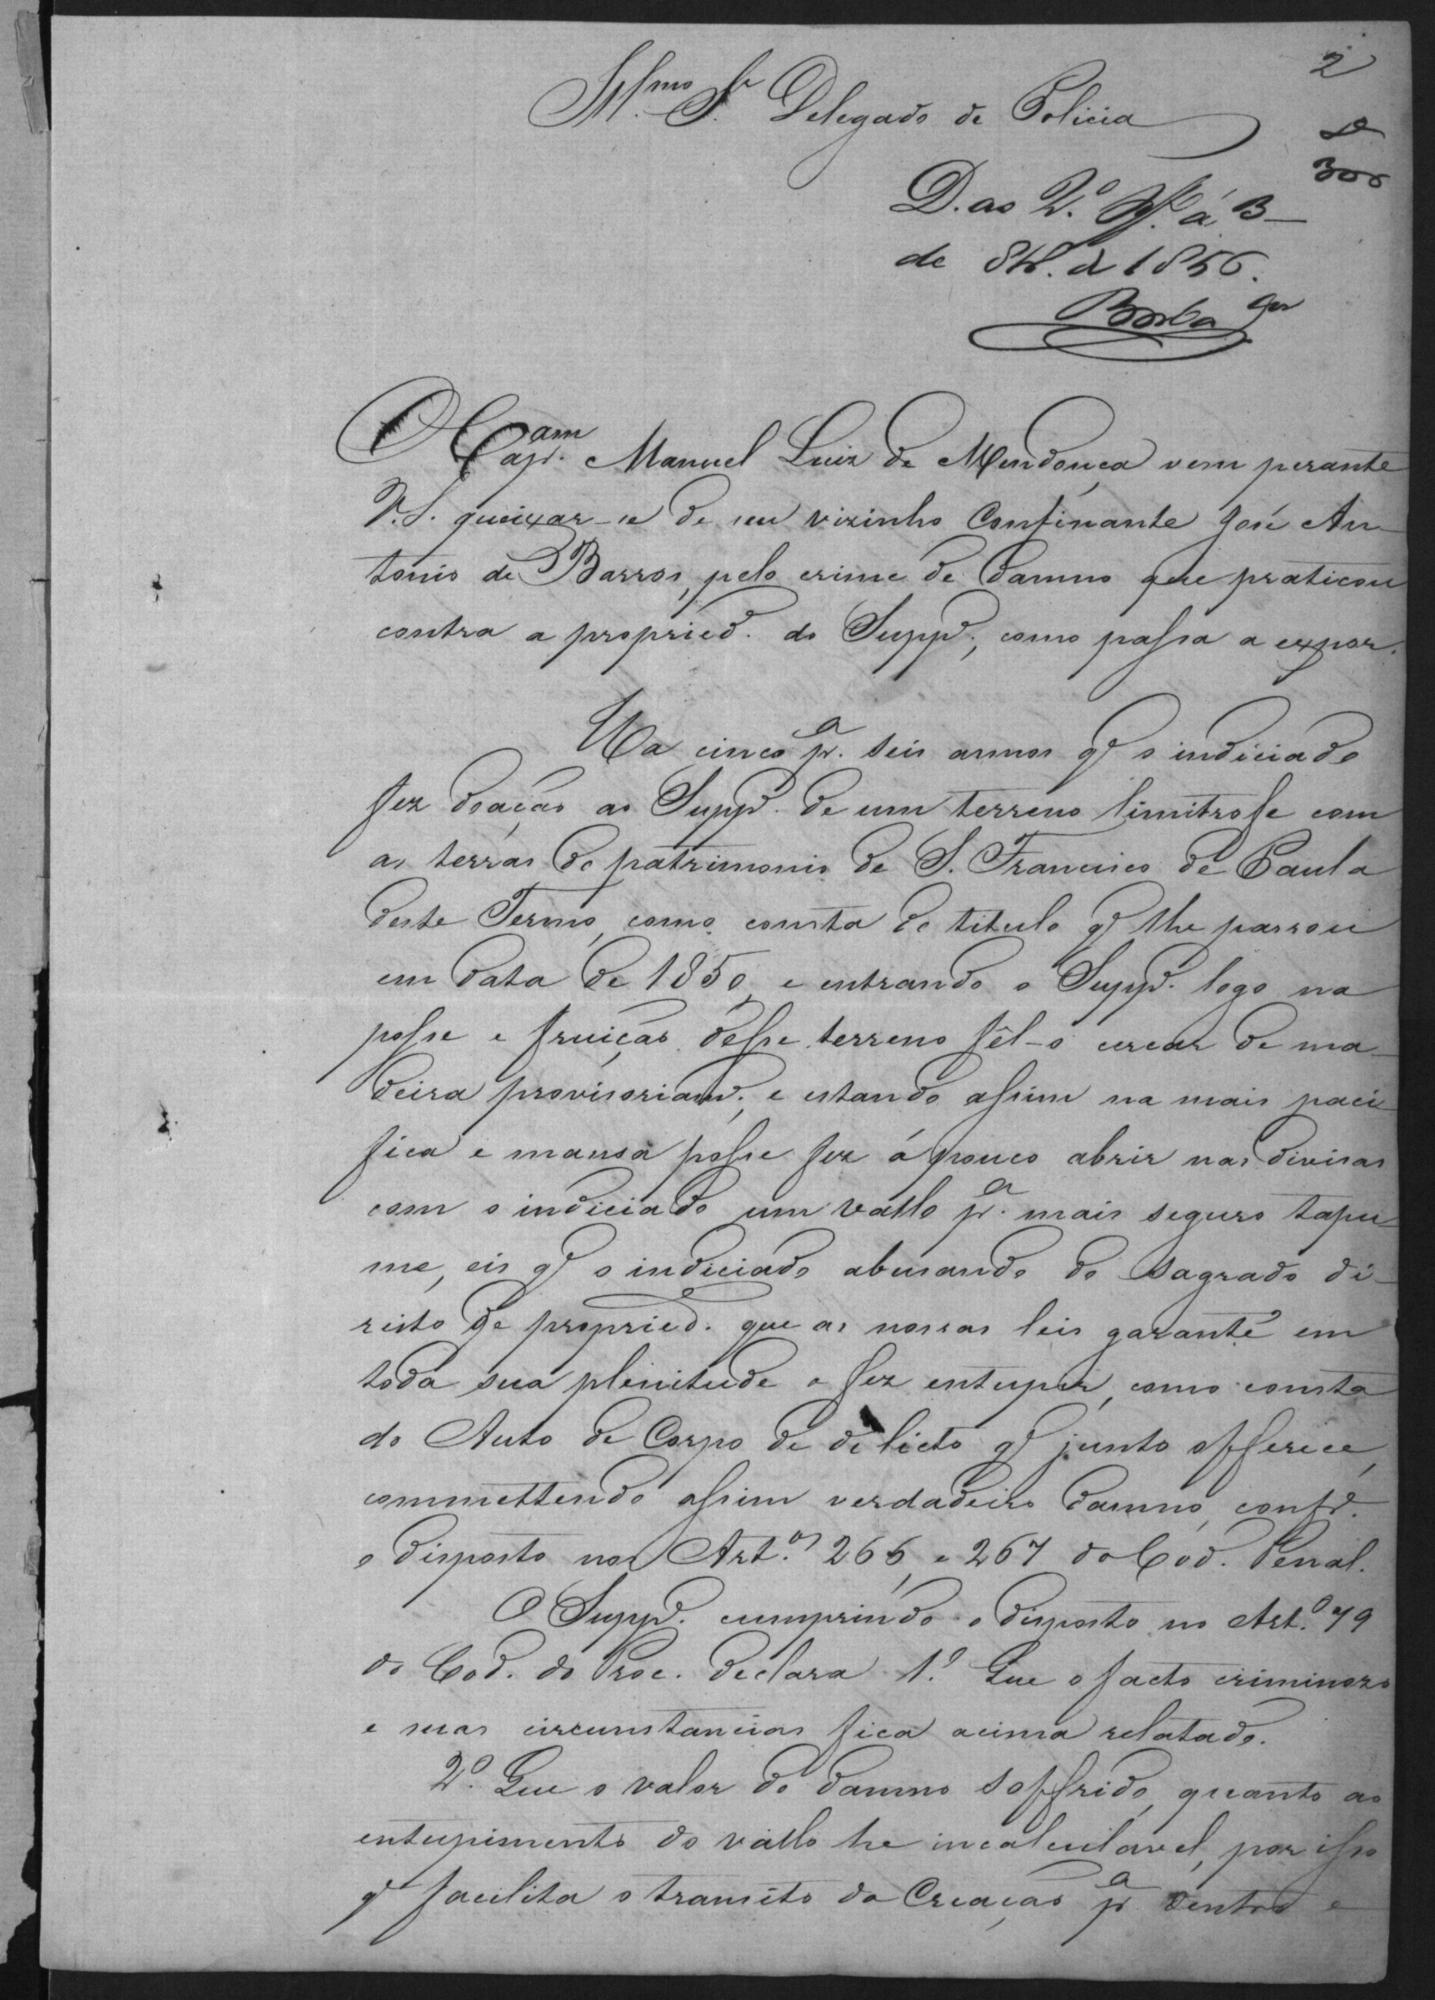 2
Ill.mo Sr. Delegado de Policia
300
D. ao 2.º á 3
de 8br. d 1856.
Borba
O Capam. Manuel Luiz de Mendonça vem perante
V.S. queixar-se de seu vizinho confinante José An-
tonio de Barros, pelo crime de damno que praticou
contra a propried. do Suppe., como passa a expor.
Ha cinco pa. seis annos qe o indiciado
fez doação ao Suppe. de um terreno limitrofe com
as terras do patrimonio de S. Francisco de Paula
deste Termo, como consta do titulo qe lhe passou
em data de 1850, e entrando o Suppe. logo na
posse e fruição desse terreno fêl-o cercar de ma-
deira provisoriame., e estando assim na mais paci-
fica e mansa posse fez á pouco abrir nas divisas
com o indiciado um vallo pa. mais seguro tapu-
me, eis qe o indiciado abusando do sagrado di-
reito de propried. que as nossas leis garante em
toda sua plenitude o fez entupir, como consta
do Auto de Corpo de delicto qe junto offerece,
commettendo assim verdadeiro damno, confe.
o disposto nos Art.os 266, e 267 do Cod. Penal.
O Suppe. cumprindo o disposto no Art.º 79
do Cod. do Proc. declara 1.º Que o facto criminozo
e suas circunstancias fica acima relatado.
2.º Que o valor do damno soffrido, quanto ao
entupimento do vallo he incalculavel, por isso
qe facilita o transito da Creação pa dentro e